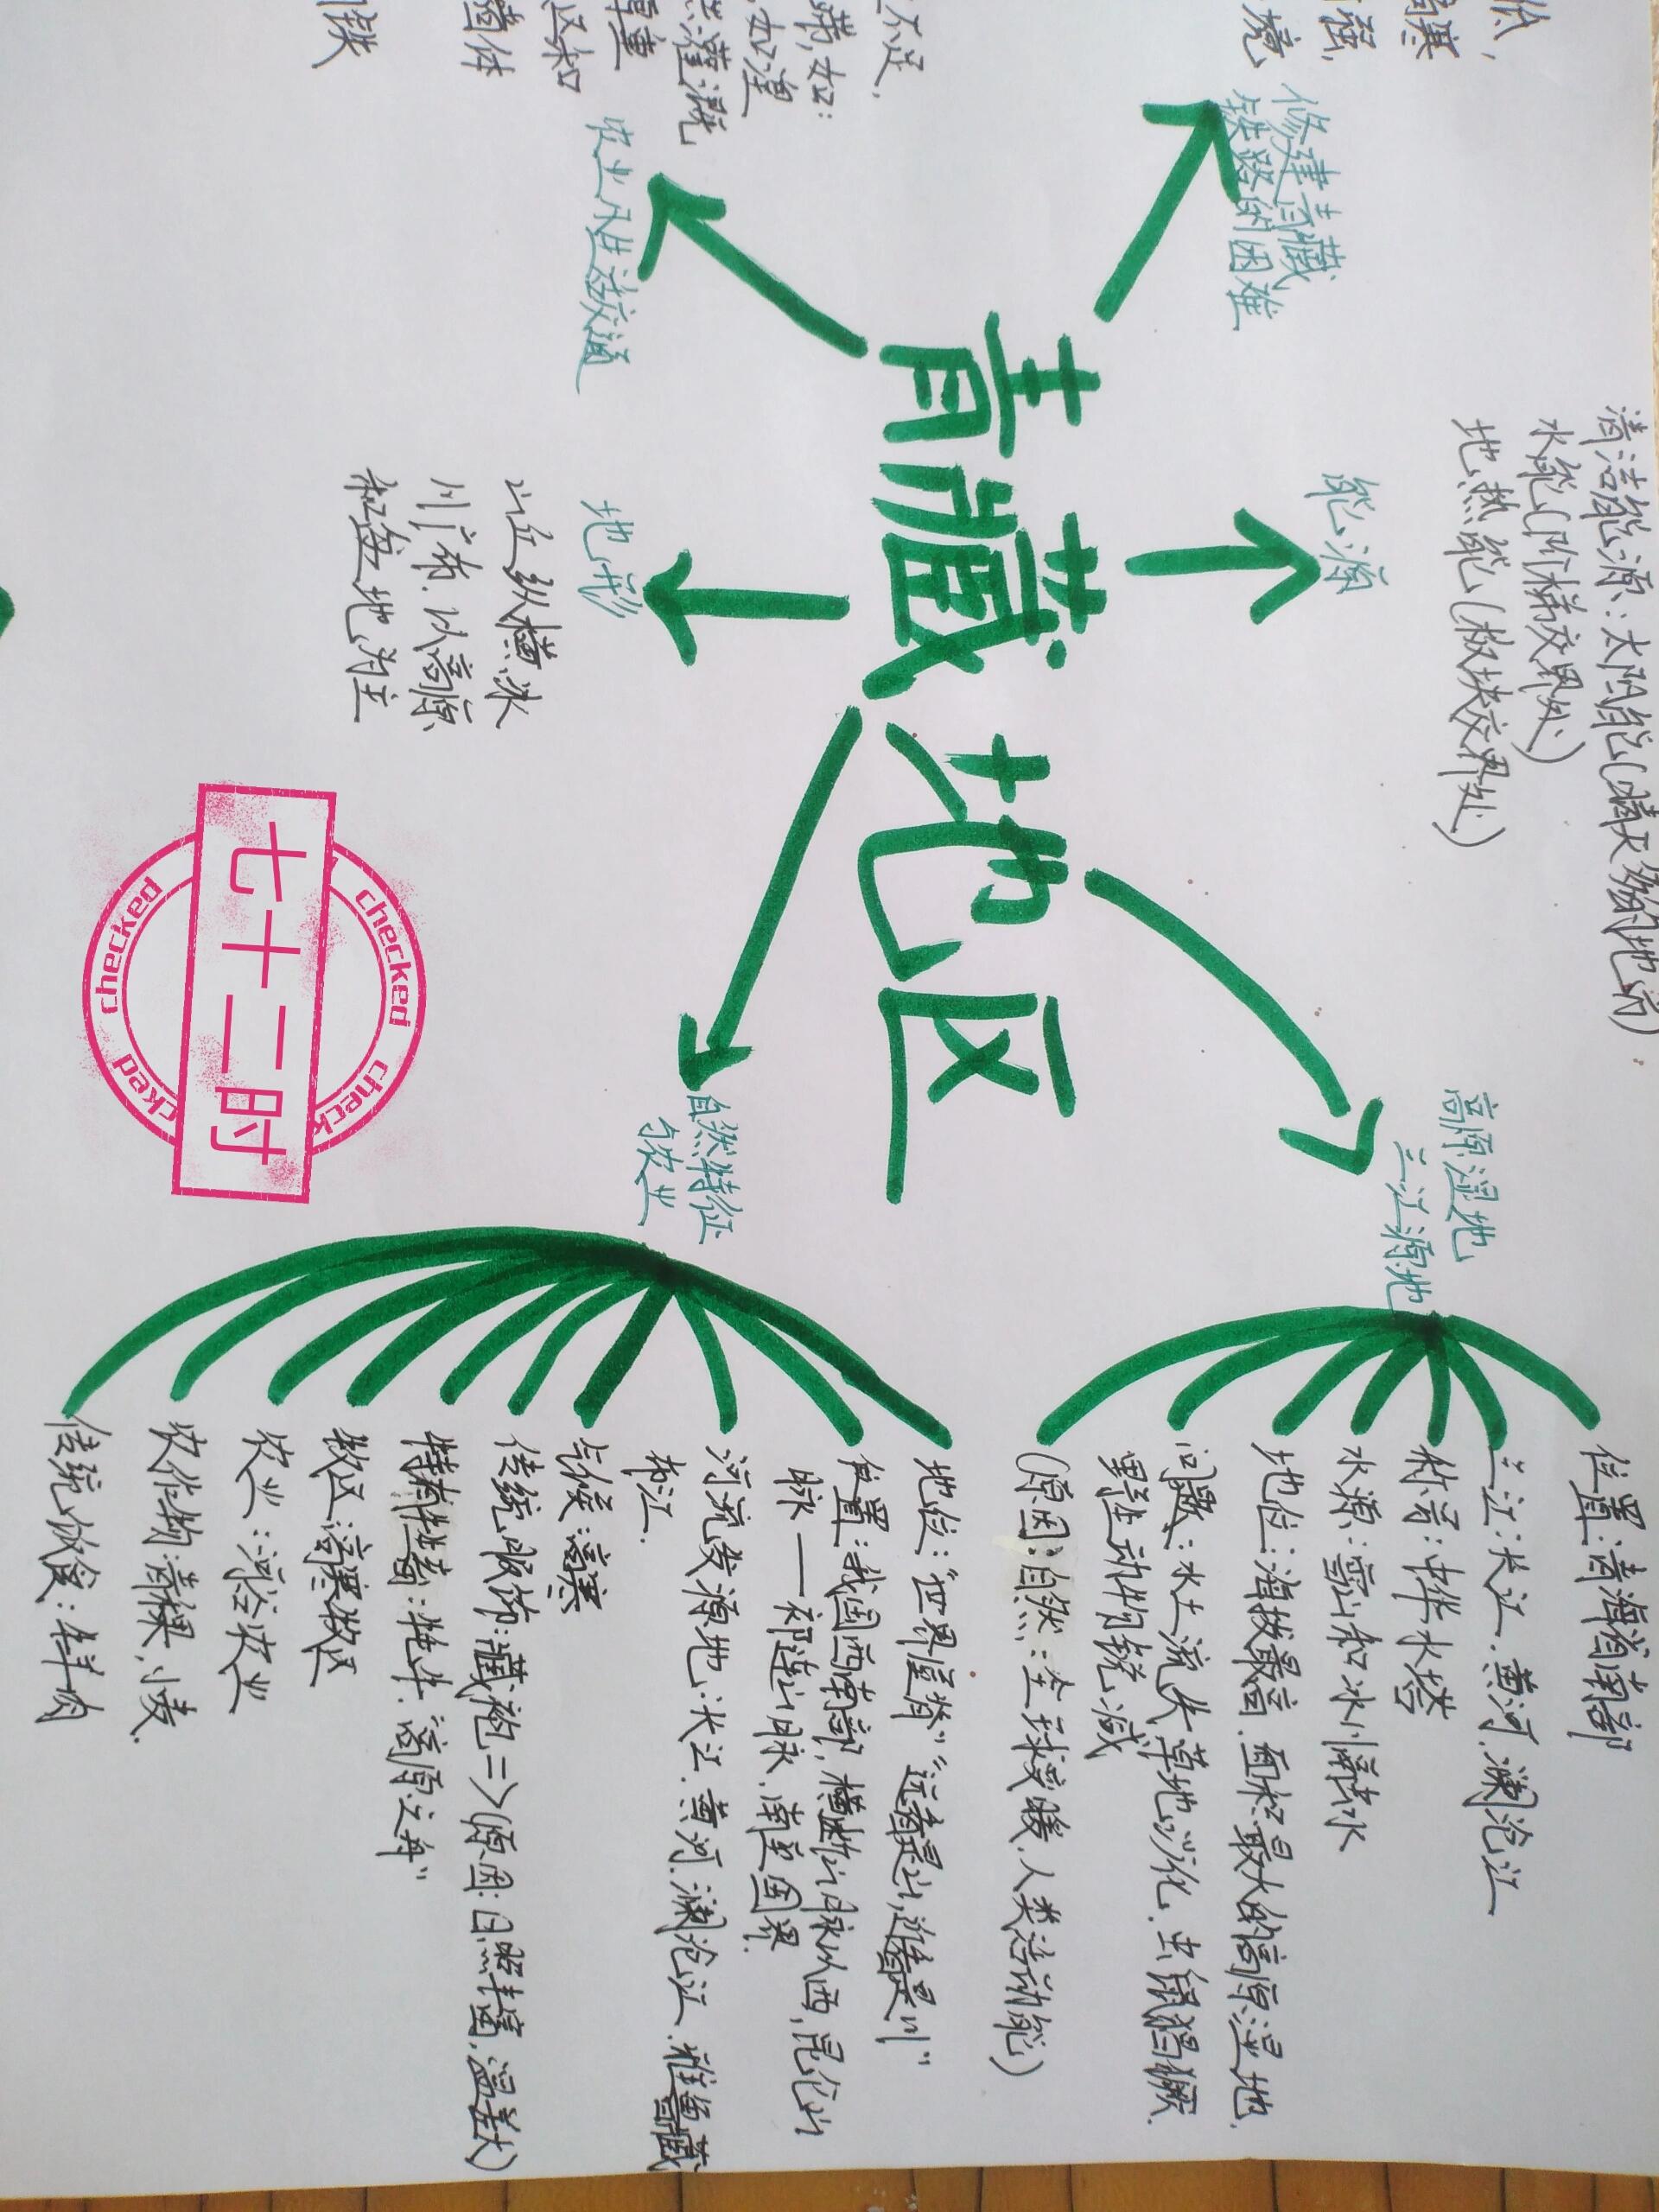 低,
高寒
强,
境
修建青藏
铁路的困难
清洁能源:太阳能(晴天多的地方)
水能(阶梯交界处)
地热能(板块交界处)
能源
高原湿地
三江源地
位置:青海省南部
三江:长江、黄河、澜沧江
称号:中华水塔
水源:雪山和冰川融水
地位:海拔最高、面积最大的高原湿地.
问题:水土流失、草地沙化、虫鼠猖獗、
野生动物锐减
(原因:自然:全球变暖、人类活动能)
青藏地区
不足,
农业及生活交通
地形
山脉纵横,冰
川广布,以高原
和盆地为主
自然特征
与农业
地位:“世界屋脊”“远看是山,近看是川”
位置:我国西南部,横断山脉以西,昆仑山
脉——祁连山脉、南至国界.
河流发源地:长江、黄河、澜沧江、雅鲁藏
布江.
气候:高寒
传统服饰:藏袍=>(原因:日照丰富,温差大)
特有牲畜:牦牛、“高原之舟”
牧区:高寒牧区
农业:河谷农业
农作物:青稞、小麦.
传统饮食:牛羊肉
七十二时
checked
checked
check
cked